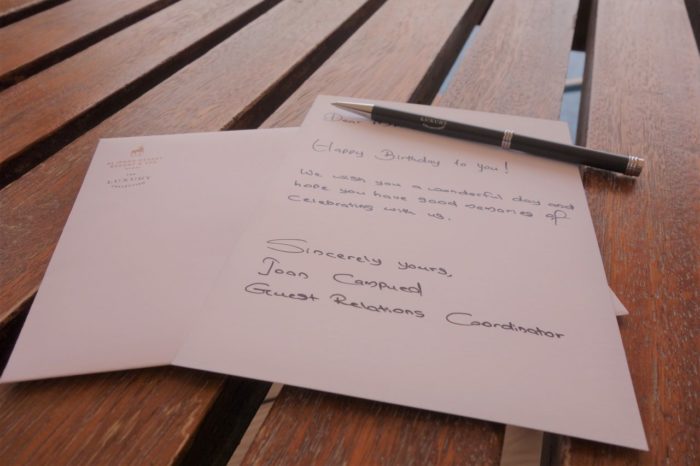 THE
LUXURY
COLLECTION
Dear
Happy Birthday to you!
We wish you a wonderful day and
hope you have good memories of
celebrating with us.
Sincerely yours,
Joan
Guest Relations Coordinator
LUXURY